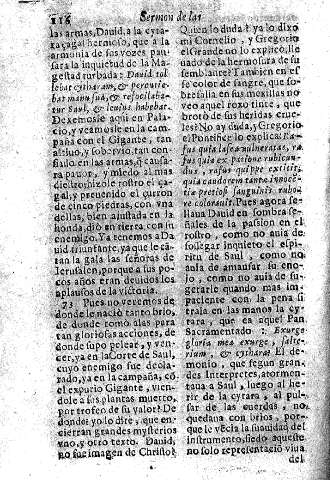 116 Sermon de las
las armas, Dauid, a la cytara
zagal hermoso, que a la
armonia de sus vozes pausara
la inquietud de la Magestad
turbada: Dauid tollebat
cytharam, & percutiebat
manu sua, & refocillabatur
Saul, & leuius habebat.
Dexemosle aqui en Palacio,
y veamosle en la campaña
con el Gigante, tan
altiuo, y soberuio, tan confiado
en las armas, q̃ causara
pauor, y miedo al mas
hizo rostro el zagal,
y preuenido el çurron
de cinco piedras, con vna
dellas, bien ajustada en la
honda, dió en tierra con su
enemigo. Ya tenemos a Dauid
triunfante, ya que le cantan
la gala las señoras de
Ierusalen, porque a sus pocos
años eran deuidos los
aplausos de la victoria.
73 Pues no veremos de
donde le nació tanto brio,
de donde tomo alas para
tan gloriosas acciones, de
donde supo pelear, y vencer,
ya en la Corte de Saul,
cuyo enemigo fue declarado,
ya en la campaña, có
el expurio Gigante, viendole
a sus plantas muerto,
por trofeo de su valor? De
donde? yo lo dire, que encierran
grandes mysterios
vno, y otro texto. Dauid,
no fue imagen de Christo?
Quien lo duda? ya lo dixo
mi Cornelio, y Gregorio
el Grande no lo explicò, llenado
de la hermosura de su
semblante? Tambien en esse
color de sangre, que sobresalia
en sus mexillas no
veo aquel roxo tinte, que
brotó de sus heridas crueles?
No ay duda, Gregorio
el Pontifice lo explica: Rufus
quia
rufus quia ex passione rubicundus,
rufus, quippe extitit,
quia candorem tantæ innocentiæ
pretiosi sanguinis rubore
colorauit. Pues agora señalaua
Dauid en sombra señales
de la passion en el
rostro, como no auia de
sossegar inquieto el espiritu
de Saul, como no
auia de amansar su enojo,
como no auia de
sugetarle quando mas impaciente
con la pena si
traia en las manos la cytara,
que en aquel Pan
Sacramentado: Exurge
gloria mea exurge, psalterium,
& cythara? El demonio,
que segun grandes
Interpretes, atormentaua
a Saul, luego al herir
de la cytara, al pulsar
de las cuerdas, no
quedaua con brios, porque
le vécia la suauidad del
instrumento, siedo aqueste
no solo representació viua
del